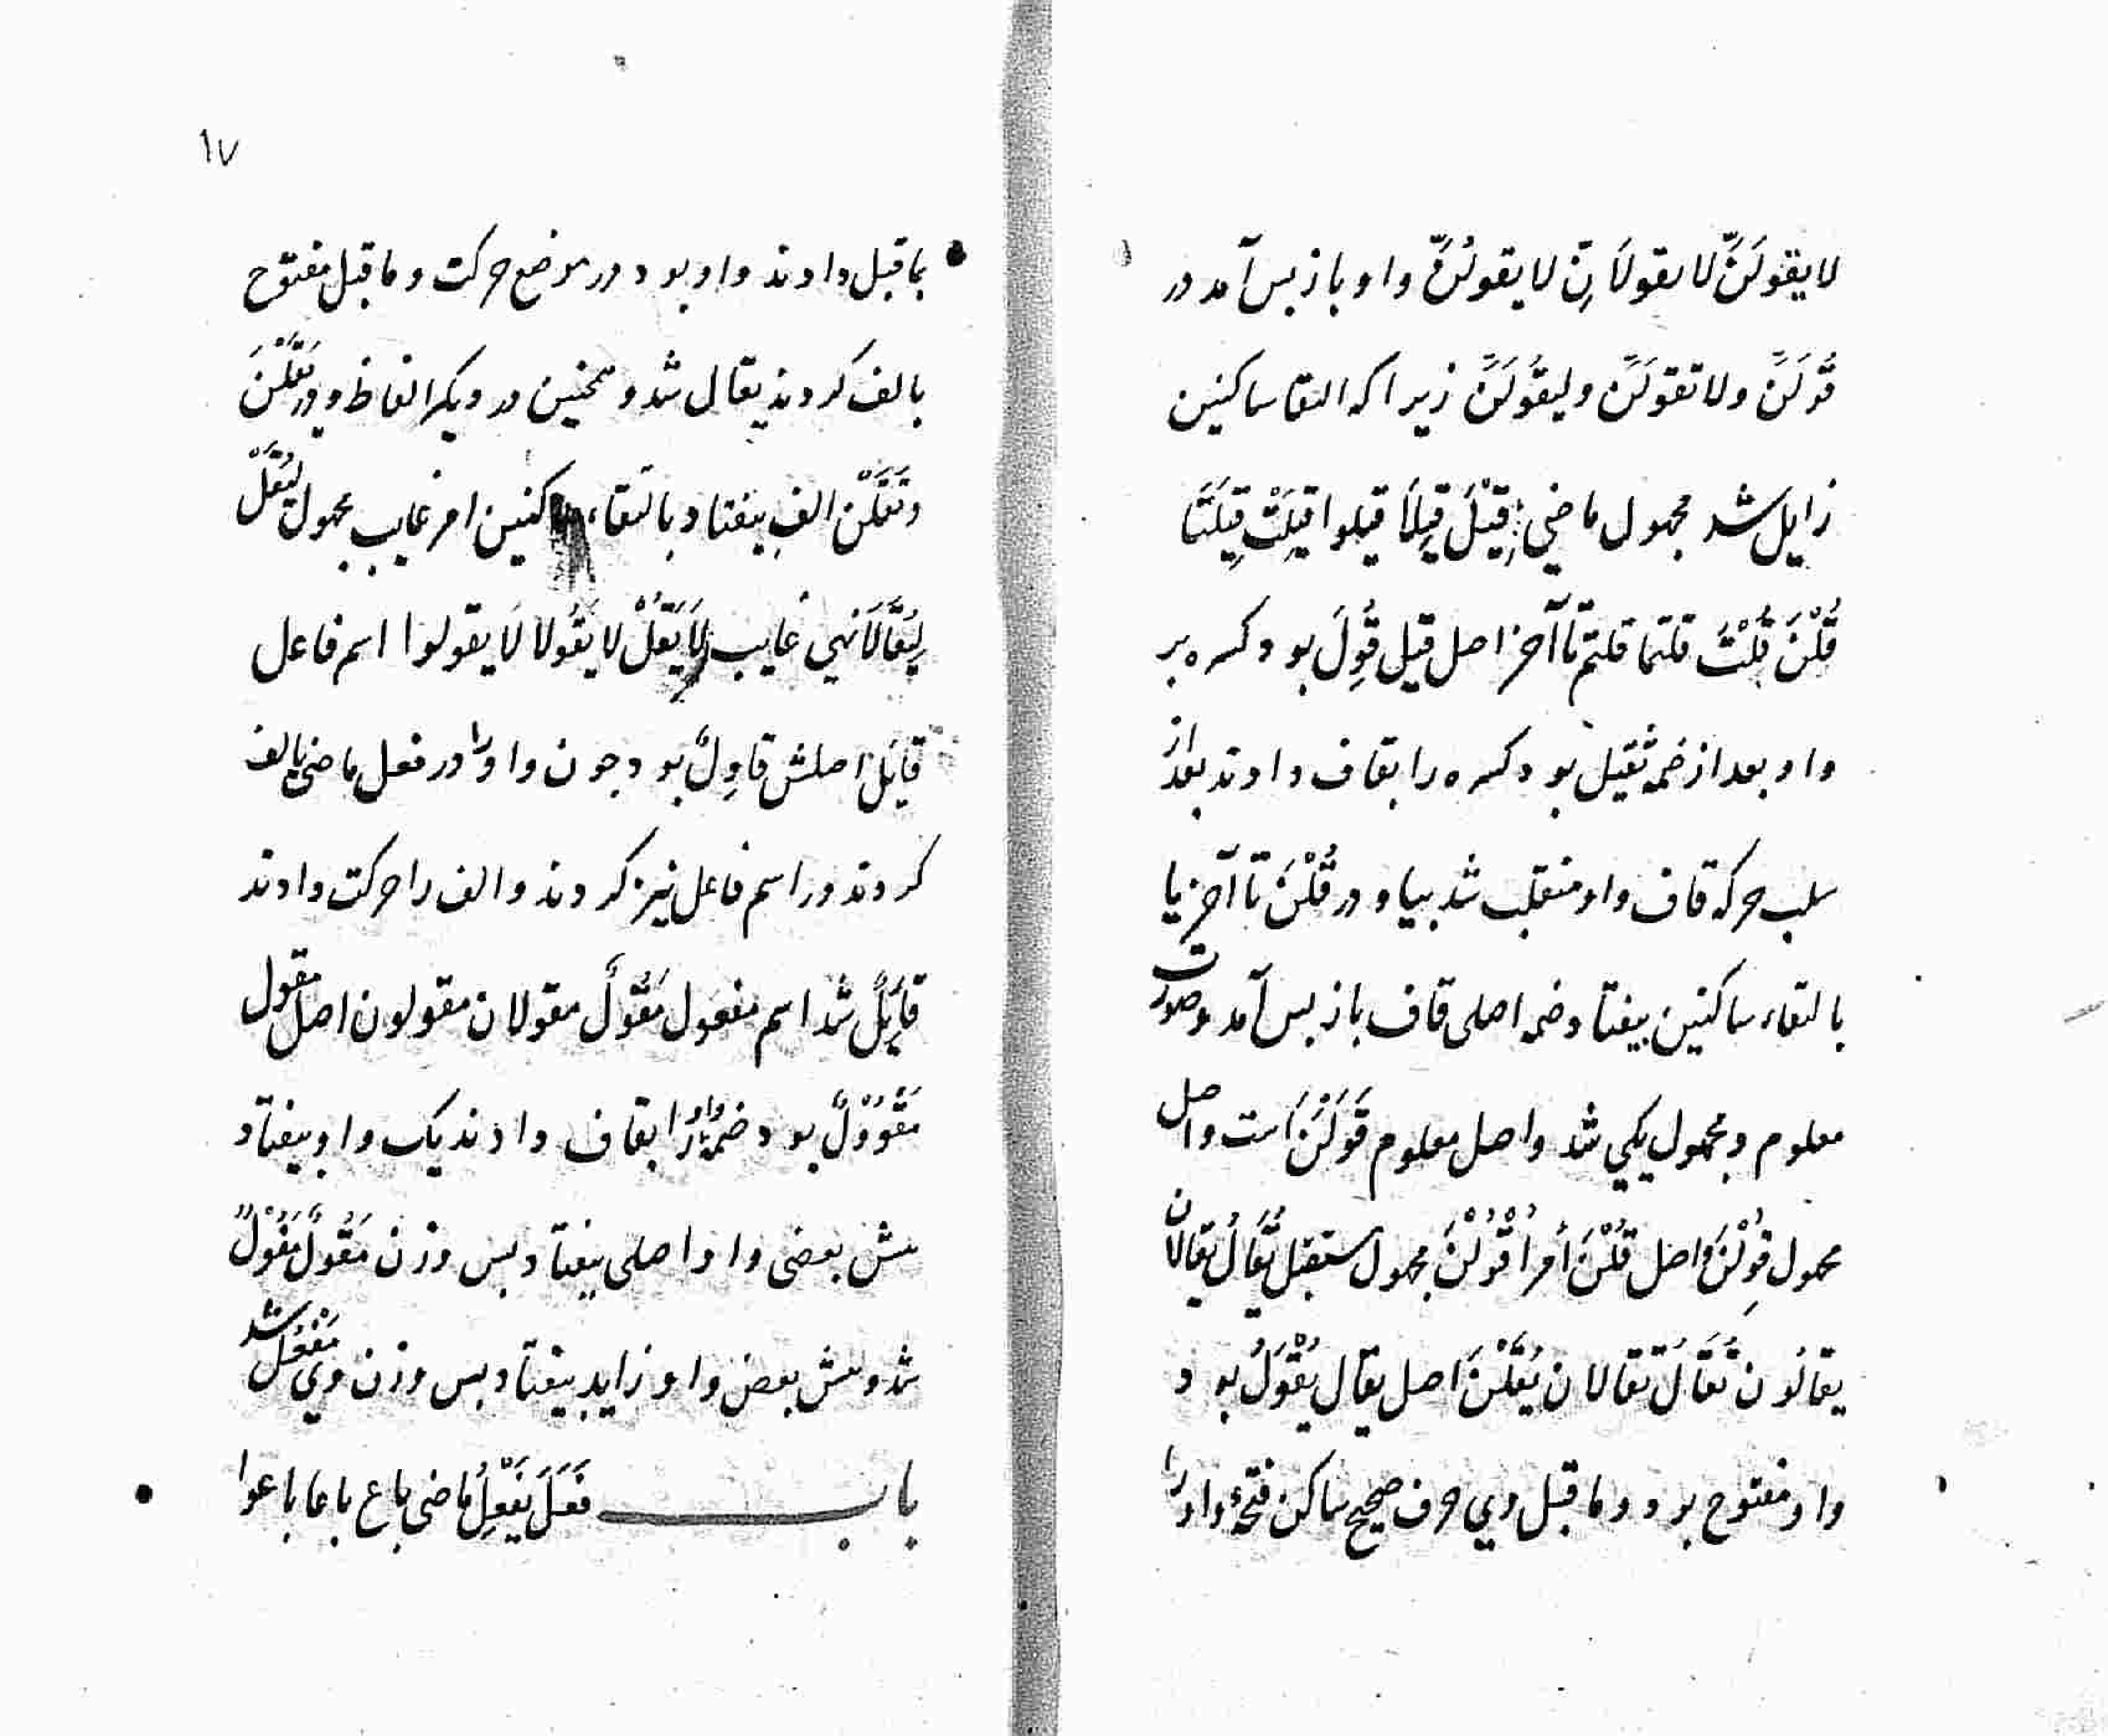 لا یقولَنَّ لا یقولَانِّ لا یقولُنَّ واو باز پس آمد در
قُولَنَّ ولا تقولَنَّ ولیقُولَنَّ زیرا که التقا ساکنین
زایل شد مجهول ماضي قِیْلَ قِیلَا قیلوا قِیلَتْ قِیلَتَا
قُلْنَ قُلْتَ قلتما قلتم تا آخر اصل قیل قُوِلَ بود کسره بر
واو بعد از ضمه ثقیل بود کسره را بقاف دادند بعد از
سلب حرکه قاف واو منقلب شد بیا و در قُلْنَ تا آخر یا
بالتقاء ساکنین بیفتاد ضمه اصلی قاف باز پس آمد وصورت
معلوم و مجهول یکي شد و اصل معلوم قَوَلْنَ است و اصل
مجهول قُوِلْنَ و اصل قُلْنَ أمر اُقْوُلْنَ مجهول مستقبل یُقَالُ یُقالان
یقالُون تُقَالُ تقالان یُقَلْنَ اصل یقال یُقْوَلُ بود
واو مفتوح بود و ما قبل وي حرف صحیح ساکن فتحهٔ واو را
۱۷
بما قبل دادند واو بود در موضع حرکت و ما قبل مفتوح
بالف کردند یقال شد و همچنین در دیگر الفاظ و در یُقَلْنَ
و تُقَلْنَ الف بیفتاد بالتقاء ساکنین امر غایب مجهول لِیُقَلْ
لِیُقَالَا نهي غایب لَا یَقُلْ لا یَقُولا لَا یقولوا اسم فاعل
قایِلٌ اصلش قاوِلٌ بود چون واو را در فعل ماضی بالف
کردند در اسم فاعل نیز کردند و الف را حرکت دادند
قایِلٌ شد اسم مفعول مَقُولٌ مقولان مقولون اصل مقول
مَقْوُوْلٌ بود ضمه واو را بقاف دادند یک واو بیفتاد
پیش بعضی واو اصلی بیفتاد پس وزن مَقُولٌ مَفُوْلٌ
شد و پیش بعض واو زاید بیفتاد پس وزن وي مَفُعْلٌ شد
باب فَعَلَ یَفْعِلُ ماضی باع باعا باعوا